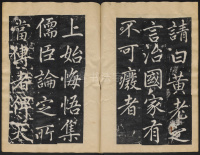 請曰黄老之
言治國家有
不可癈者
上始悔悟集
儒臣論定所
當傳者得其